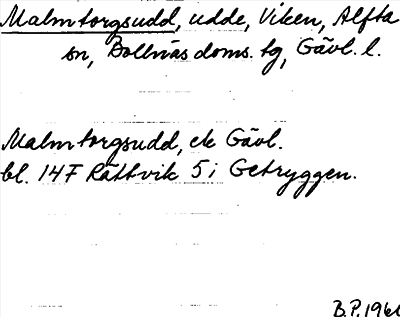 Malmtorgsudd, udde, Viken, Alfta
sn, Bollnäs doms. tg, Gävl. l.
Malmtorgsudd, ek Gävl.
bl. 14F Rättvik 5i Getryggen.
B.P. 196